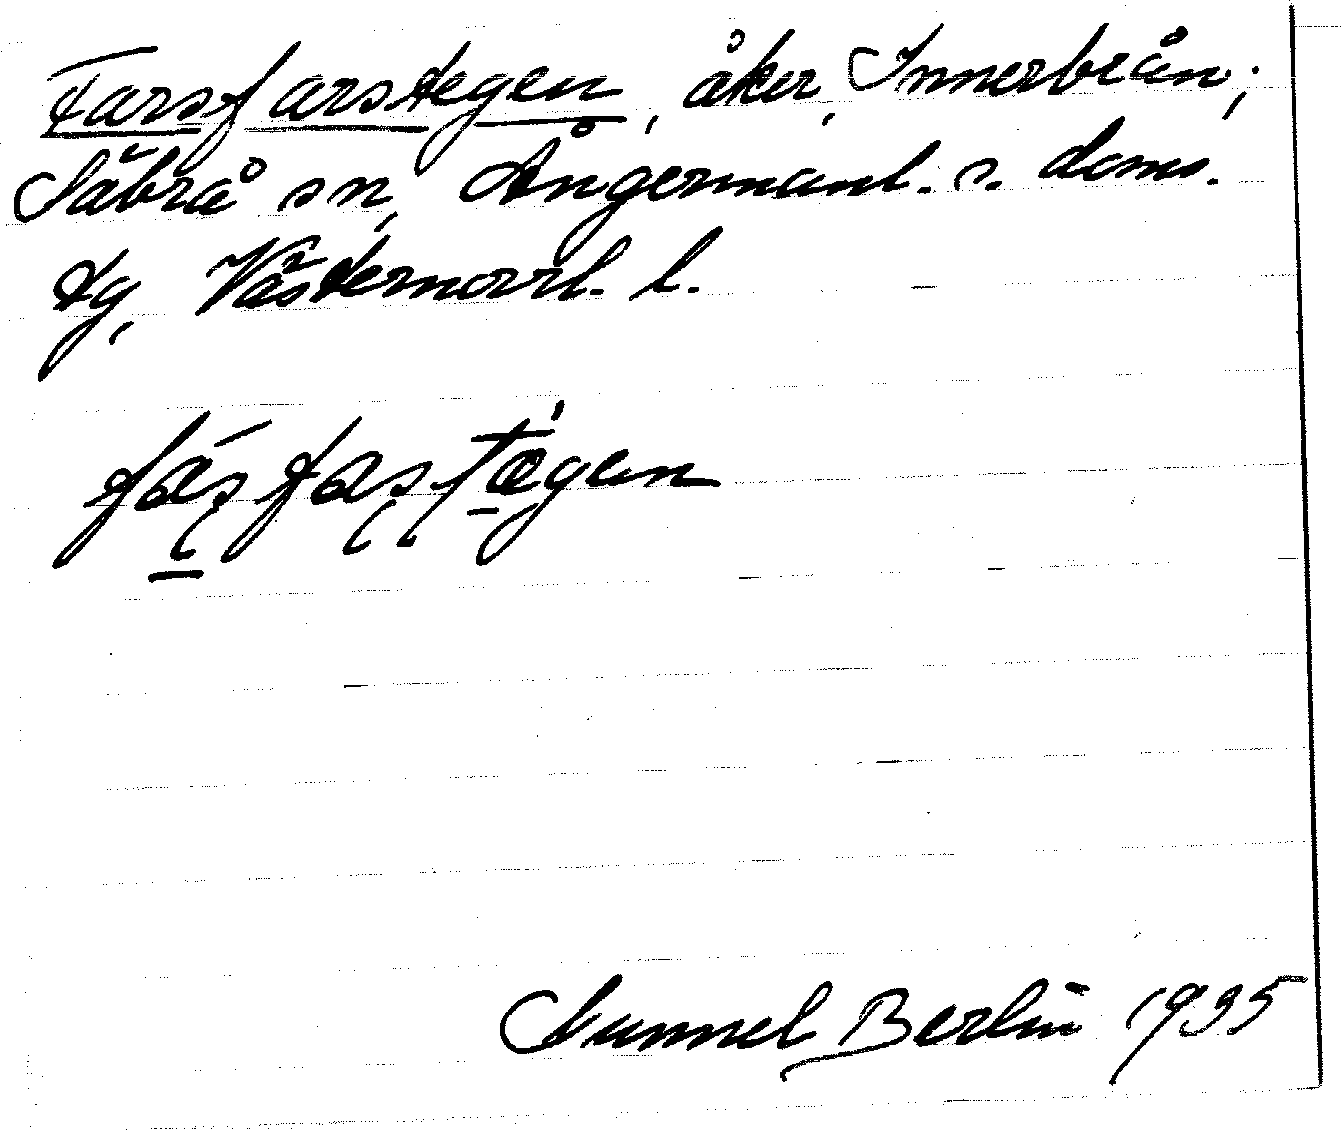 Farsfarstegen, åker, Innerbeån;
Säbrå sn, Ångermanl. s. doms.
tg, Västernorrl. l.
Nunnel Berlin 1935